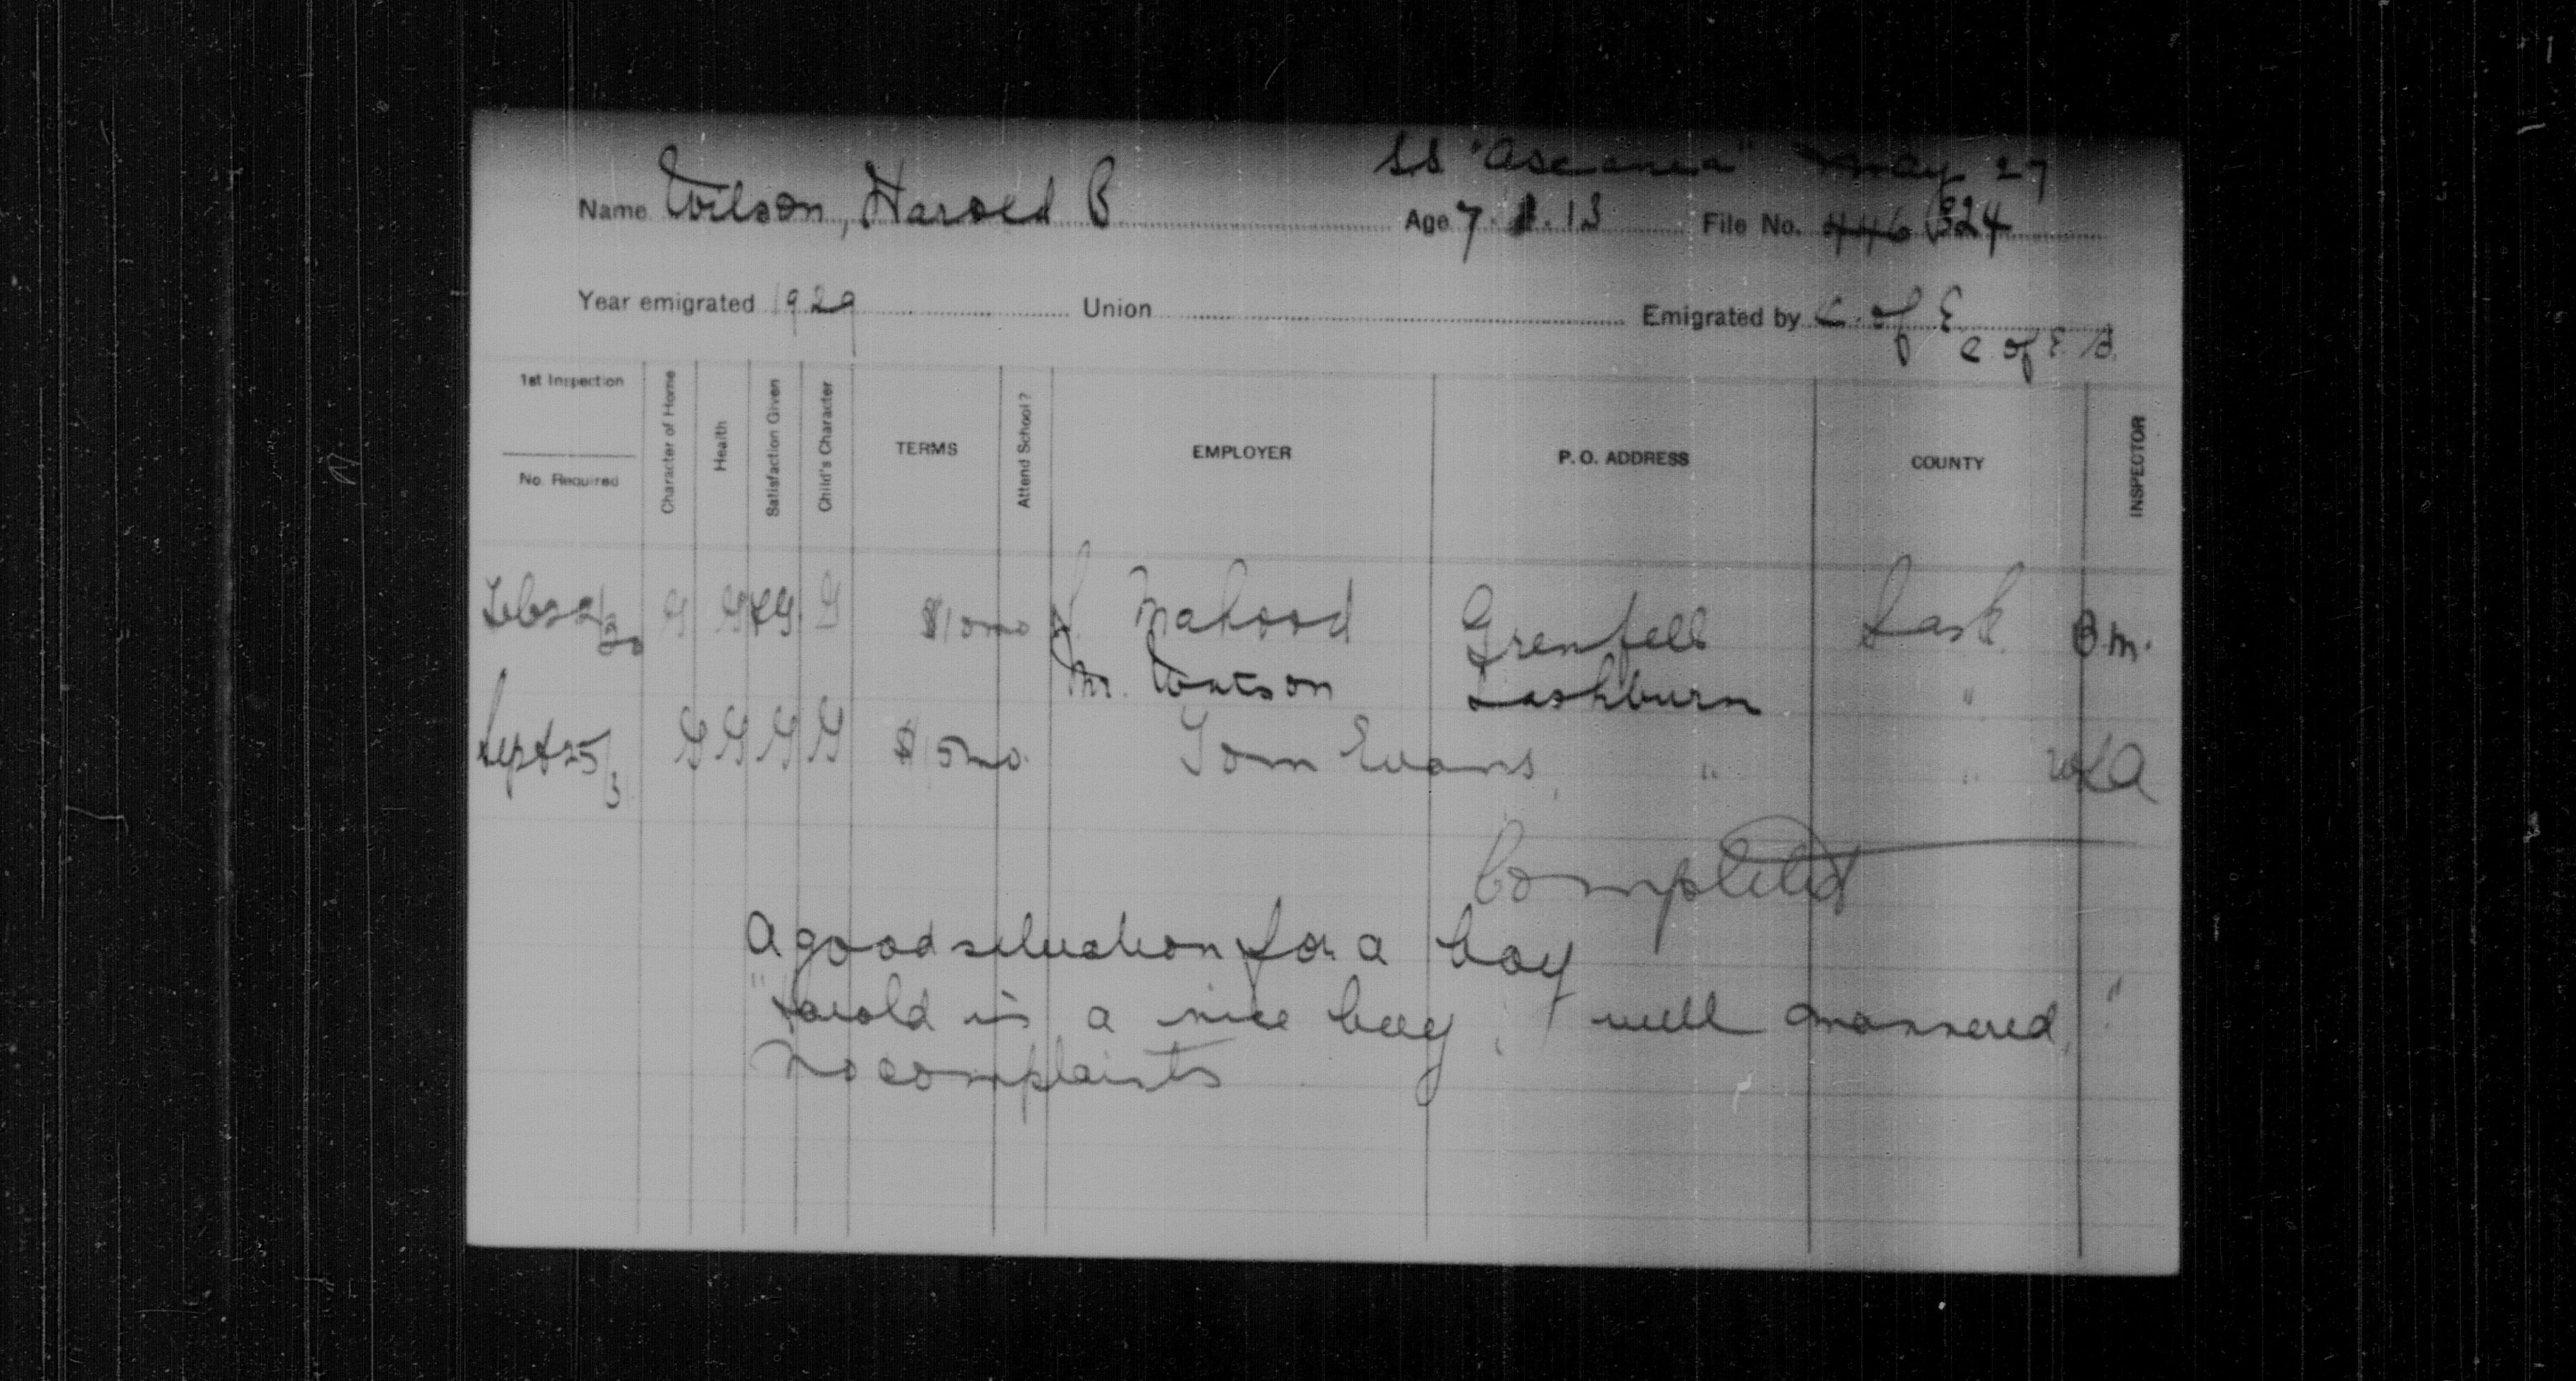 SS "Ascania" May 27
Name Wilson, Harold B Age 7. 1. 13 File No. 446324
Year emigrated 1929 Union Emigrated by C. of E.
C of E. S.
1st Inspection
No. Required
Character of Home
Health
Satisfaction Given
Child's Character
TERMS
Attend School?
EMPLOYER
P. O. ADDRESS
COUNTY
INSPECTOR
Feb 22/30 G G FG. G $10 mo Mahood Grenfell Sask. B.M.
Mr. Watson Lashburn "
Sept 25/3 G G G G $15 mo. Tom Evans " "
Completed
A good situation for a boy
"Harold is a nice boy, well mannered."
No complaints